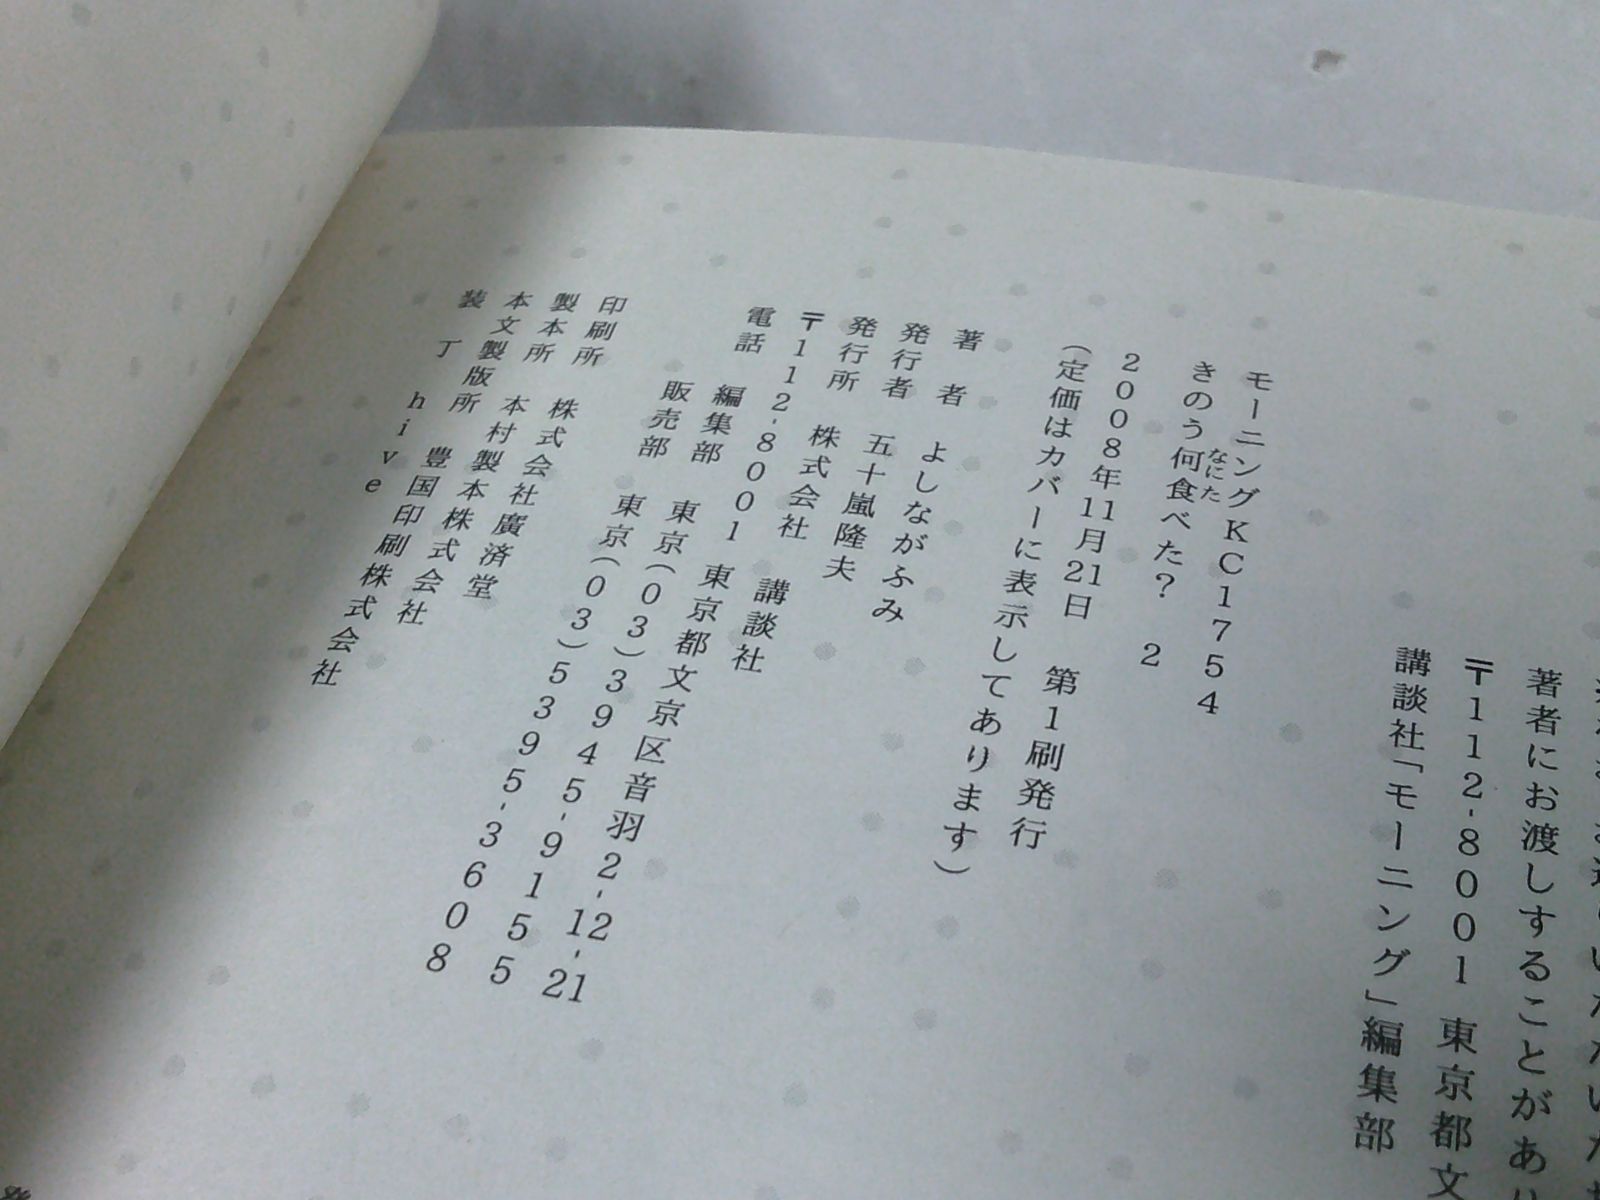 著者にお渡しすることがあ
〒112-8001 東京都文
講談社「モーニング」編集部
モーニングKC1754
きのう何食べた? 2
なにた
2008年11月21日 第1刷発行
(定価はカバーに表示してあります)
著 者 よしながふみ
発行者 五十嵐隆夫
発行所 株式会社 講談社
〒112-8001 東京都文京区音羽2-12-21
電話 編集部 東京(03)3945-9155
販売部 東京(03)5395-3608
印刷所 株式会社廣済堂
製本所 本村製本株式会社
本文製版所 豊国印刷株式会社
装 丁 hive